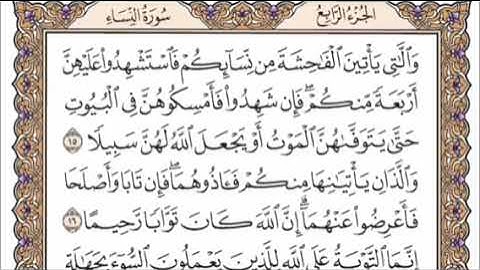 الجزء الرابع سورة النساء
وَٱلَّٰتِي يَأۡتِينَ ٱلۡفَٰحِشَةَ مِن نِّسَآئِكُمۡ فَٱسۡتَشۡهِدُواْ عَلَيۡهِنَّ
أَرۡبَعَةٗ مِّنكُمۡۖ فَإِن شَهِدُواْ فَأَمۡسِكُوهُنَّ فِي ٱلۡبُيُوتِ
حَتَّىٰ يَتَوَفَّىٰهُنَّ ٱلۡمَوۡتُ أَوۡ يَجۡعَلَ ٱللَّهُ لَهُنَّ سَبِيلٗا ١٥
وَٱلَّذَانِ يَأۡتِيَٰنِهَا مِنكُمۡ فَـَٔاذُوهُمَاۖ فَإِن تَابَا وَأَصۡلَحَا
فَأَعۡرِضُواْ عَنۡهُمَآۗ إِنَّ ٱللَّهَ كَانَ تَوَّابٗا رَّحِيمًا ١٦
إِنَّمَا ٱلتَّوۡبَةُ عَلَى ٱللَّهِ لِلَّذِينَ يَعۡمَلُونَ ٱلسُّوٓءَ بِجَهَٰلَةٖ